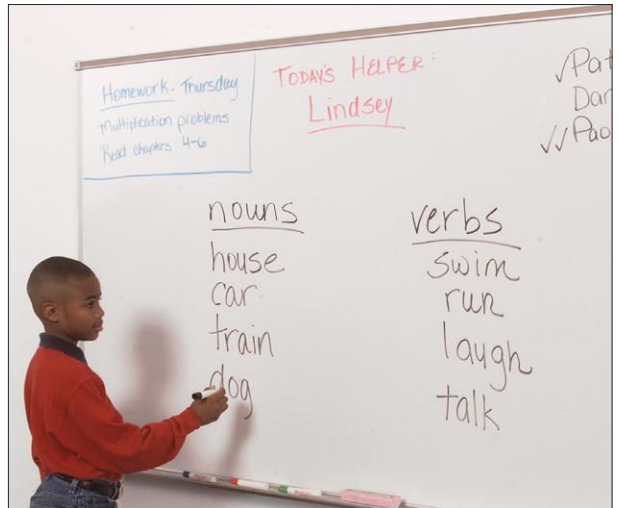 Homework - Thursday
Multiplication problems
Read chapters 4-6
TODAY'S HELPER:
Lindsey
✓Pat
Dar
✓✓Pao
nouns
house
car
train
dog
verbs
swim
run
laugh
talk